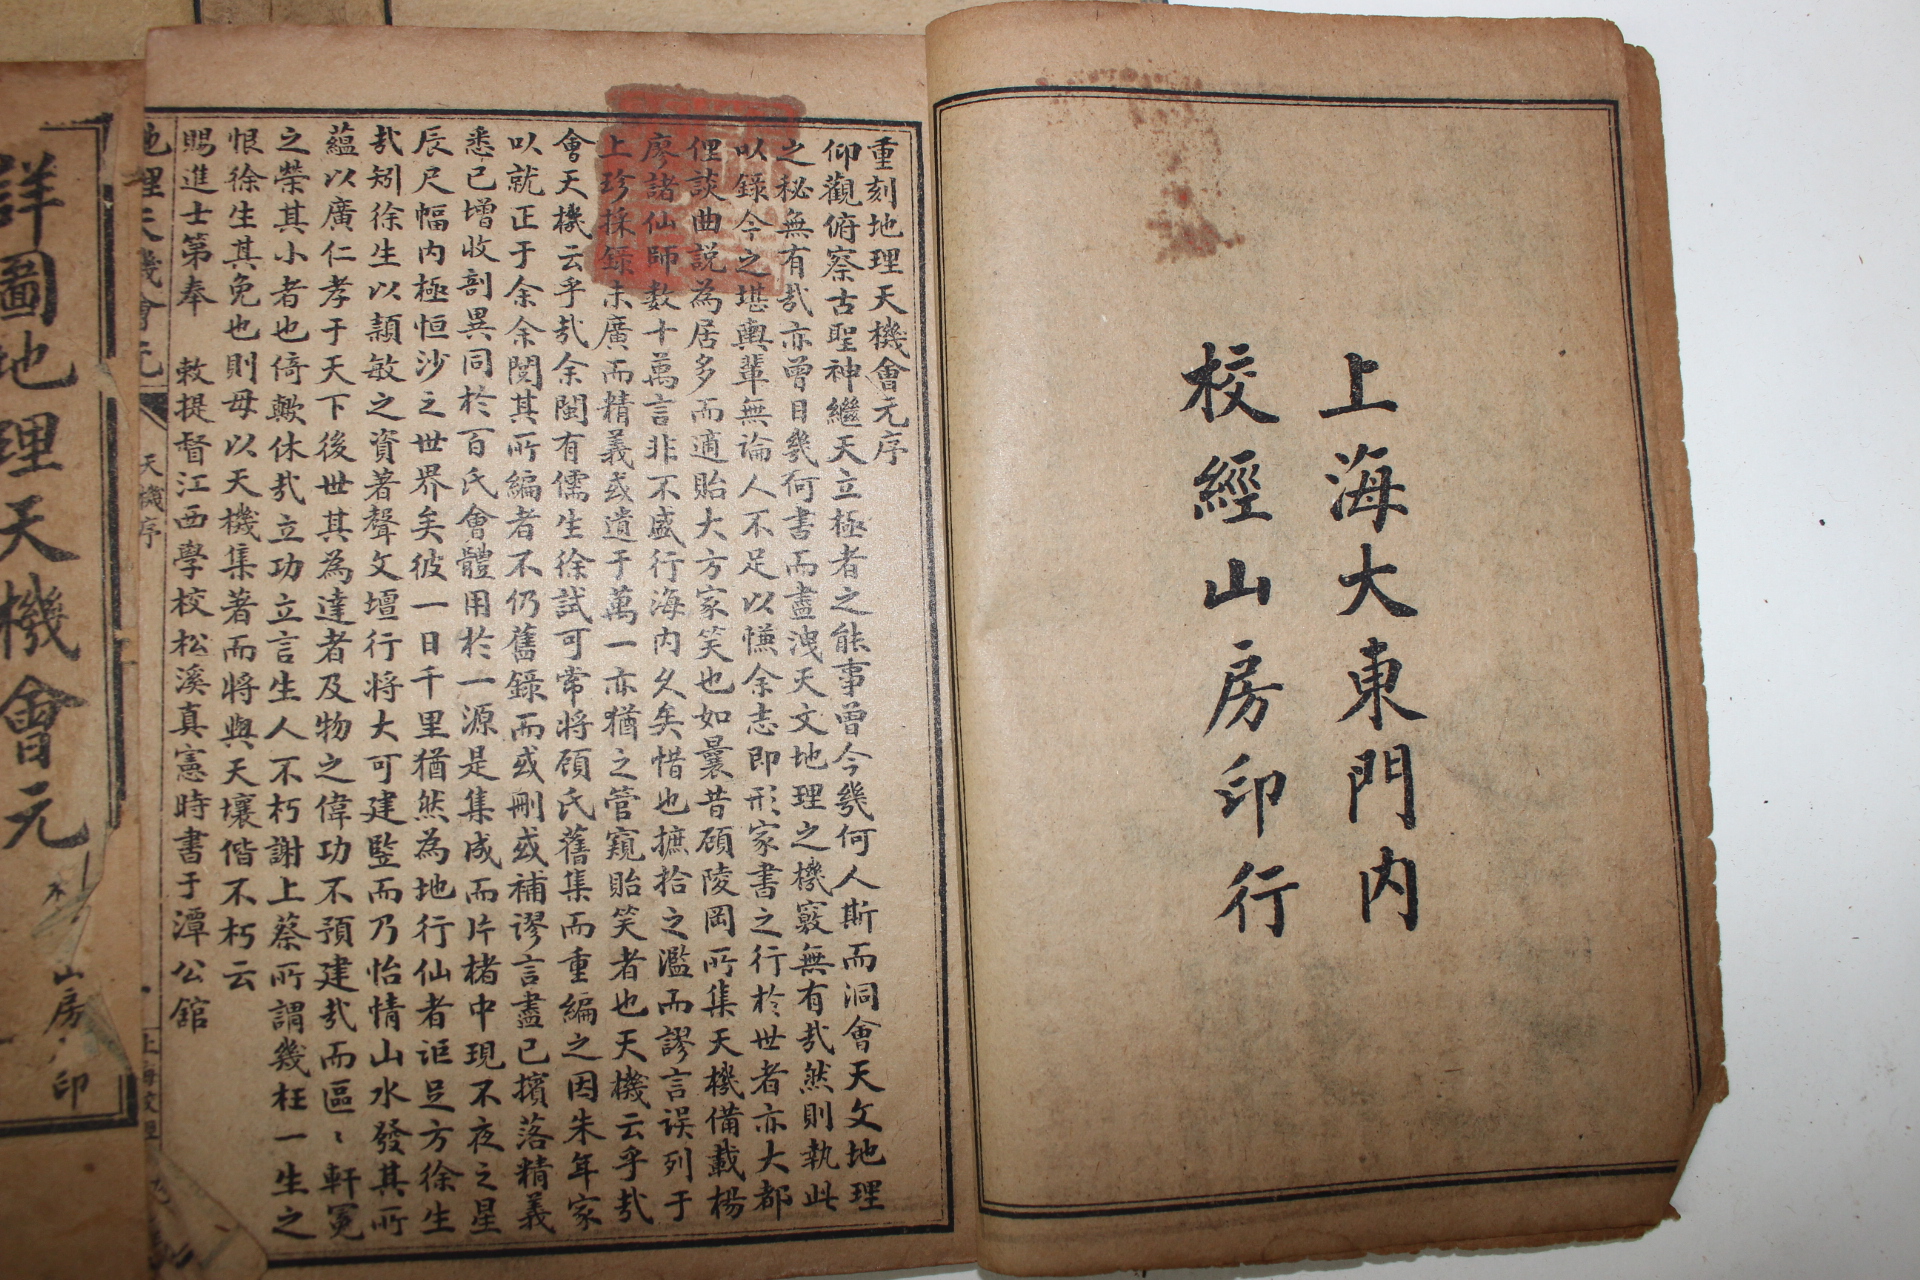 上海大東門内
校經山房印行
重刻地理天機會元序
仰觀俯察古聖神繼天立極者之能事曾今幾何人斯而洞會天文地理
之秘無有㢤亦曾日幾何書而盡洩天文地理之機竅無有㢤然則執此
以錄今之堪輿輩無論人不足以慊余志即形家書之行於世者亦大都
俚談曲説為居多而適貽大方家笑也如曩昔顧陵岡所集天機備載楊
廖諸仙師數十萬言非不盛行海内久矣惜也摭拾之濫而謬言误列于
上珍採錄未廣而精義或遺于萬一亦猶之管窺貽笑者也天機云乎㢤
會天機云乎㢤余閩有儒生徐試可常將顧氏舊集而重編之因朱年家
以就正于余余閱其所編者不仍舊錄而或刪或補謬言盡已擯落精義
悉已增收剖異同於百氏會體用於一源是集成而片楮中現不夜之星
辰尺幅内極恒沙之世界矣彼一日千里猶然為地行仙者詎足方徐生
㢤矧徐生以頴敏之資著聲文壇行將大可建豎而乃怡情山水發其所
蘊以廣仁孝于天下後世其為達者及物之偉功不預建㢤而區〻軒冕
之榮其小者也倚歟休㢤立功立言生人不朽謝上蔡所謂幾枉一生之
恨徐生其免也則毋以天機集著而將與天壤偕不朽云
賜進士第奉 敕提督江西學校松溪真憲時書于潭公館
地理天機會元
天機序
上海校經
詳圖地理天機會元
山房印